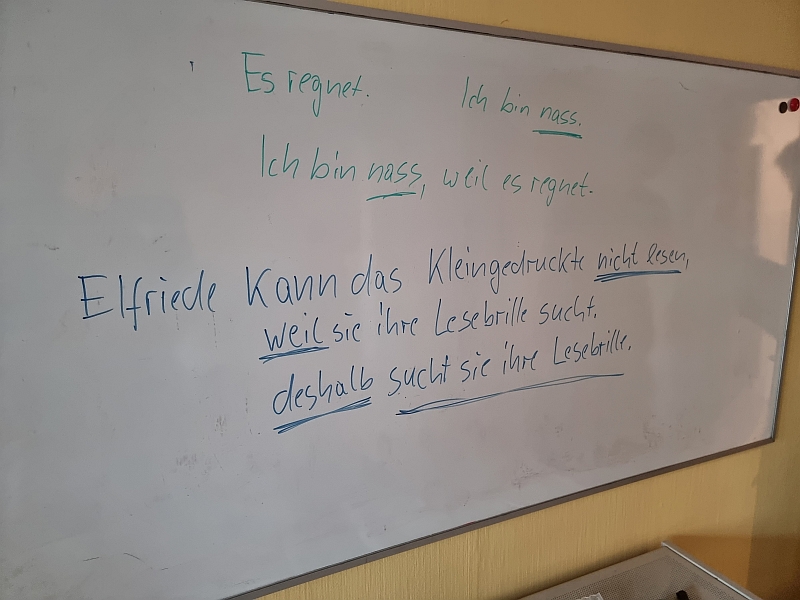 Es regnet. Ich bin nass.
Ich bin nass, weil es regnet.
Elfriede kann das Kleingedruckte nicht lesen,
weil sie ihre Lesebrille sucht.
deshalb sucht sie ihre Lesebrille.